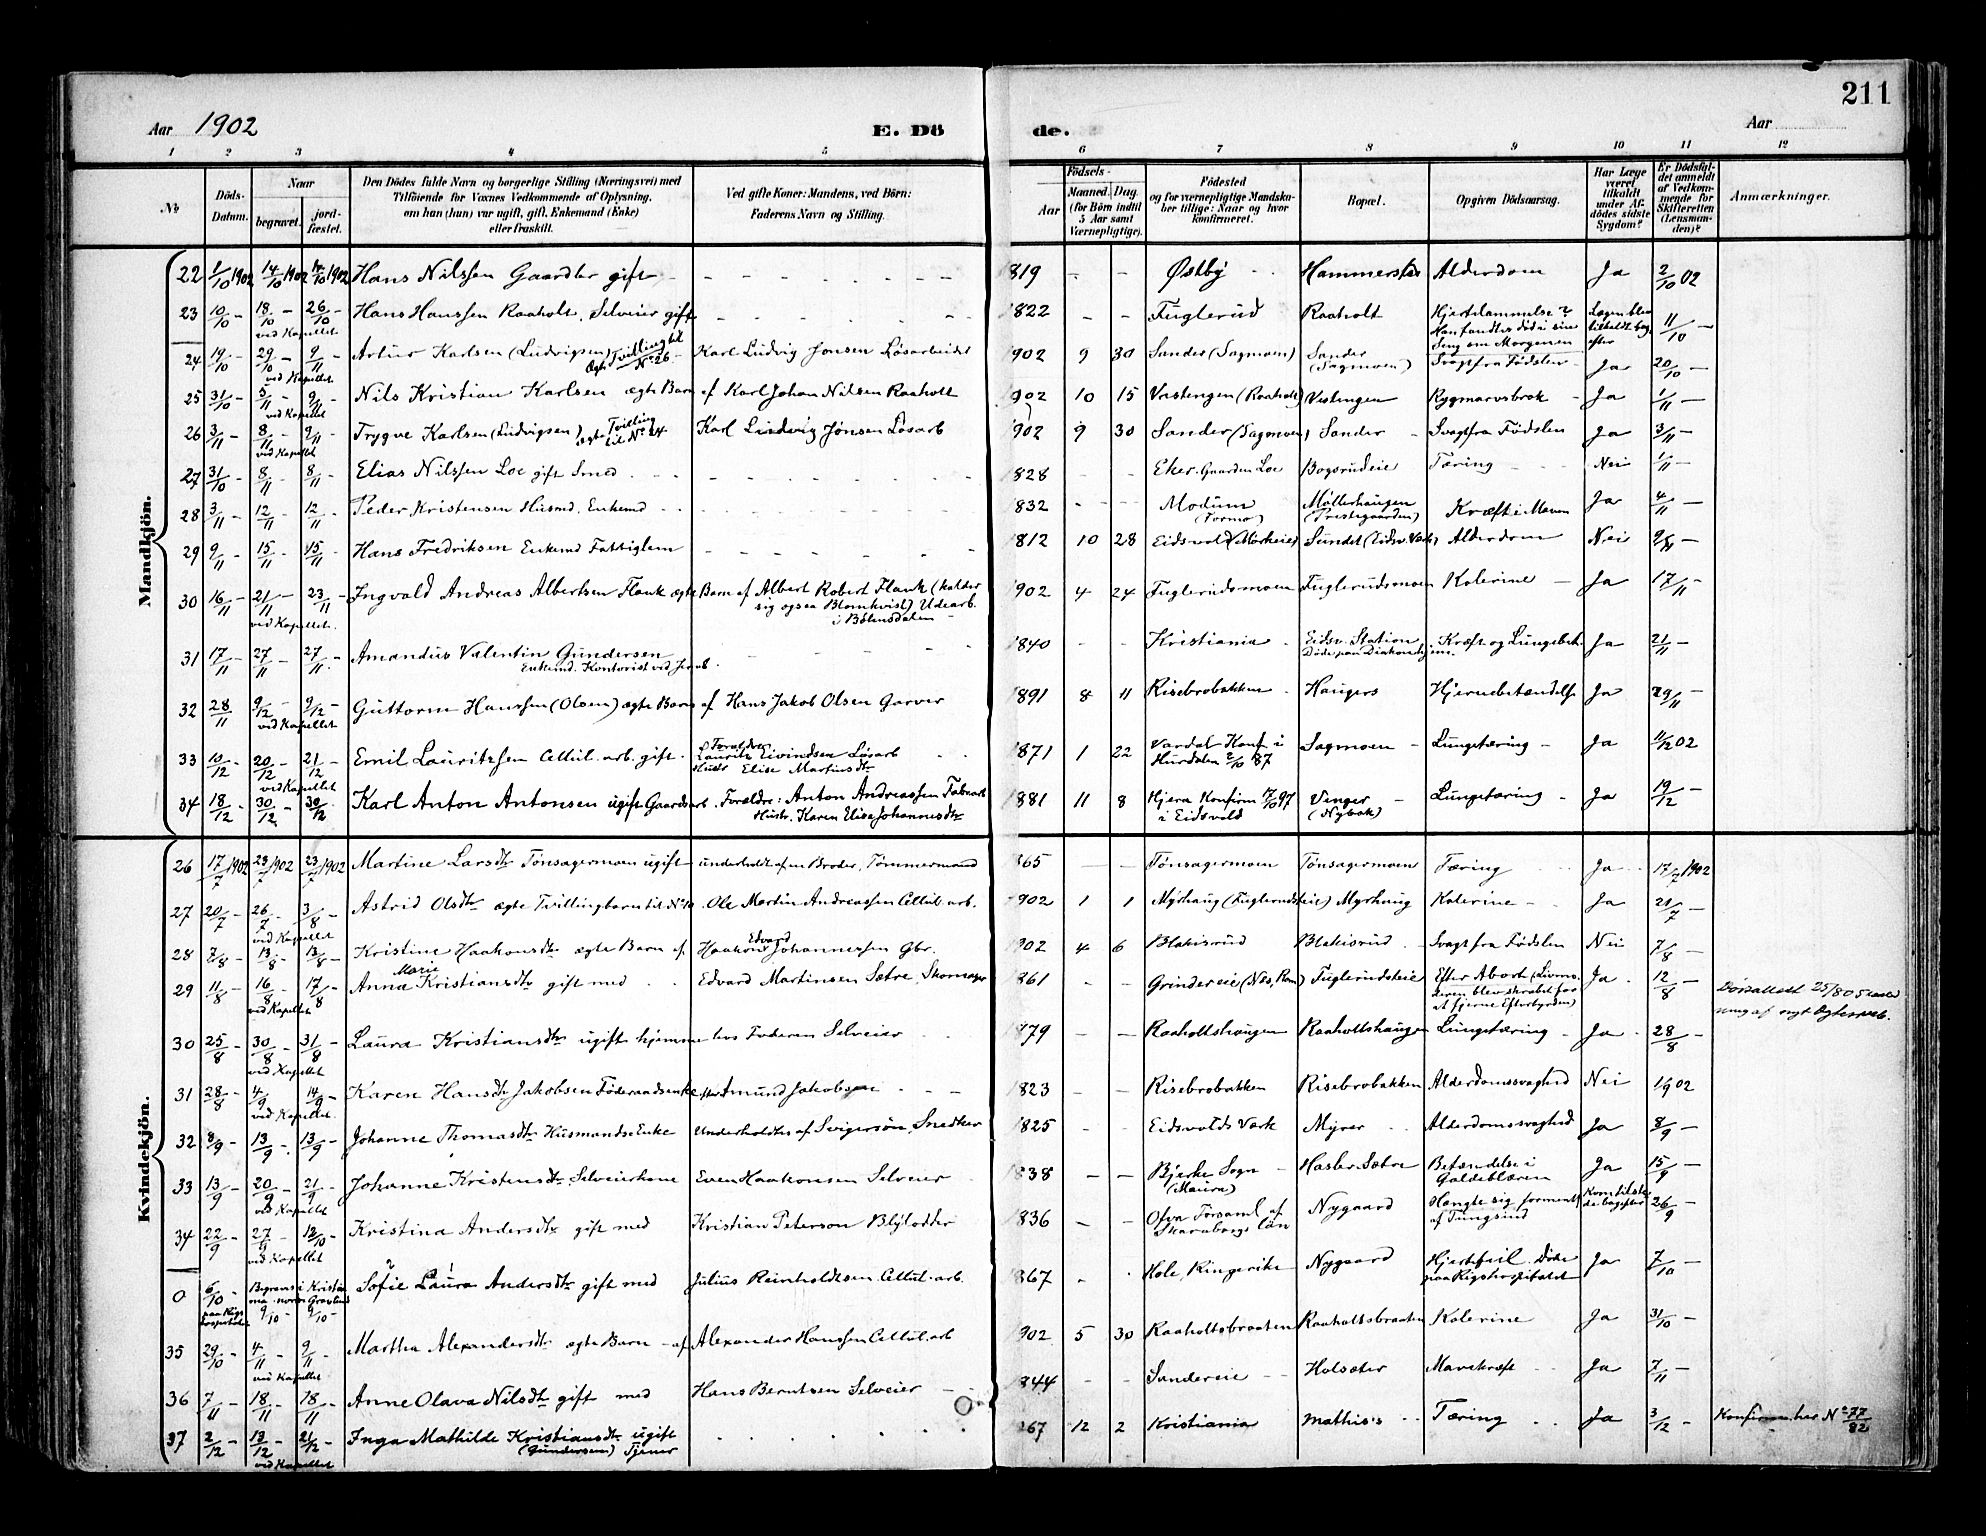 211
Aar 1902 E. Dö de. Aar
1 2 3 4 5 6 7 8 9 10 11 12
No Döds-Datum. Naar begravet. jord-fæstet. Den Dödes fulde Navn og borgerlige Stilling (Næringsvei) med Tilföiende for Voxnes Vedkommende af Oplysning, om han (hun) var ugift, gift, Enkemand (Enke) eller fraskilt. Ved gifte Koner: Mandens, ved Börn: Faderens Navn og Stilling. Födsels- Aar Maaned. Dag. (for Börn indtil 5 Aar samt Værnepligtige). Födested og for værnepligtige Mandska-ber tillige: Naar og hvor konfirmeret. Bopæl. Opgiven Dödsaarsag. Har Læge været tilkaldt under Af-dödes sidste Sygdom? Er Dödsfal-det anmeldt af Vedkom-mende for Skifteretten (Lensman-den)? Anmærkninger.
Mandkjön.
22 1/10 1902 14/10 1902 14/10 1902 Hans Nilssen Gaarder gift - 1819 - - Østby Hammerstad Alderdom Ja 2/10 02
23 10/10 - 18/10 - 26/10 - ved Kapellet Hans Hanssen Raaholt, Selveier gift 1822 - - Fuglerud Raaholt Hjertelammelse? Han fandtes död i sin Seng om Morgenen Lægen blev tilkaldt bag efter 11/10 -
24 19/10 - 29/10 - 9/11 - ved Kapellet Artur Karlsen (Ludvigsen) ægte Tvilling til No 26 - Karl Ludvig Jonsen Løsarbeider 1902 9 30 Sander (Sagmoen) Sander (Sagmoen) Svag fra Fødslen - Ja 20/10 -
25 31/10 - 5/11 - 9/11 - ved Kapellet Nils Kristian Karlsen ægte Barn af Karl Johan Nilsen Raaholt 1902 10 15 Vestengen (Raaholt) Vestengen Rygmarvsbrok - Ja 1/11 -
26 3/11 - 8/11 - 9/11 - ved Kapellet Trygve Karlsen (Ludvigsen) ægte Tvilling til No 24 Karl Ludvig Jønsen Løsarb 1902 9 30 Sander (Sagmoen) Sander - Svag fra Fødslen Ja 3/11 -
27 31/10 - 8/11 - 8/11 - Elias Nilssen Loe gift Smed 1828 Eker. Gaarden Loe Bogsrudeie Tæring Nei 1/11 -
28 3/11 - 12/11 - 12/11 - Peder Kristensen Husmd. Enkemd 1832 Modum (Formo) Møllerhaugen (Prestegaarden) Kræft i Maven Ja 4/11 -
29 9/11 - 15/11 - 15/11 - Hans Fredriksen Enkemd Fattiglem 1812 10 28 Eidsvold (Mørkeie) Sundet (Eidsv. Værk) Alderdom Nei 9/11 -
30 16/11 - 21/11 - 23/11 - ved Kapellet. Ingvald Andreas Albertsen Flauk ægte Barn af Albert Robert Flauk (kalder sig ogsaa Blomkvist) Udearb. i Bönsdalen - 1902 4 24 Fuglerudsmoen Fuglerudsmoen Kolerine - Ja 17/11 -
31 17/11 - 27/11 - 27/11 - Amandus Valentin Gundersen Enkemd. Kontorist ved Jernb. 1840 - - Kristiania - Eidsv. Station Døde paa Diakonhjem. Kræft og Lungebet. Ja 21/11 -
32 28/11 9/12 - 9/12 - ved Kapellet Guttorm Hanssen (Olsen) ægte Barn af Hans Jakob Olsen Garver 1891 8 11 Risebrobakken - Haugers Hjernebetændelse Ja 29/11 -
33 10/12 - 20/12 - 21/12 - ved Kapellet Emil Lauritzsen Cellul. arb. gift. Forældre Lauritz Eivindsen Løsarb Hustr Elise Martinsdtr 1871 1 22 Vardal Konf i Hurdalen 2/10 87 Sagmoen - Lungetæring - Ja 11/12 02
34 18/12 - 30/12 - 30/12 Karl Anton Antonsen ugift Gaardsarb. Forældre: Anton Andreassen Fabrarb Hustr. Karen Elise Johannesdtr 1881 11 8 Hjera Konfirm 7/10 97 i Eidsvold Venger (Nybak) - Lungetæring - Ja 19/12 -
Kvindekjön.
26 17/7 1902 23/7 1902 23/7 1902 Martine Larsdtr Tønsagermoen ugift underholdt af en Broder, Tømmermand 865 - - Tønsagermoen Tønsagermoen Tæring Ja 17/7 1902
27 20/7 - 26/7 - 3/8 - ved Kapellet Astrid Olsdtr ægte Tvillingbarn til No 10. Ole Martin Andreassen Cellul. arb. 1902 1 1 Myrhaug (Fuglerudseie) Myrhaug Kolerine - Ja 21/7 -
28 7/8 - 13/8 - 13/8 - Kristine Haakonsdtr ægte Barn af Haakon Edvard Johannessen Gbr. 1902 4 6 Blakisrud Blakisrud Svag fra Fødslen Nei 7/8 -
29 11/8 - 16/8 - 17/8 - ved Kapellet Anna Marie Kristiansdtr gift med Edvard Martinsen Sætre, Skomager 861 - - Grindereie (Nes, Rom) Fuglerudseie Efter Abort (Livmoderen blev skrabet for at fjerne Efterbyrden) Ja 12/8 - Dödsattest 25/8 05
30 25/8 - 30/8 - 31/8 - ved Kapellet Laura Kristiansdtr ugift hjemme hos Faderen Selveier 879 - - Raaholtshaugen Raaholtshaugen Lungetæring - Ja - 28/8 -
31 28/8 - 4/9 - 14/9 - ved Kapellet. Karen Hansdtr Jakobsen Føderaadsenke efter Amund Jakobsen 1823 - - Risebrobakken Risebrobakken Alderdomssvaghed Nei 1902
32 8/9 - 13/9 - 13/9 - Johanne Thomasdtr Husmands Enke Underholdtes af Svigersøn, Snedker 1825 - - Eidsvolds Værk Myrer Alderdomssvaghed Ja 8/9 -
33 13/9 - 20/9 - 21/9 - ved Kapellet Johanne Kristensdtr Selveierkone Even Haakonsen Selveier 838 - - Bjerke Sogn (Maura) Hasler-Sætre Betændelse i Galdeblæren Ja 15/9 -
34 22/9 - 27/9 - 12/10 - ved Kapellet Kristina Andersdtr gift med Kristian Peterson Blylodder 1836 - - Ofva Forsaml af Skaraborgs län Nygaard Hængte sig forment af Tungsind 26/9 -
0 6/10 - paa Rigshospitalet Begravet i Kristiania nordre Gravlund 9/10 - 9/10 - Sofie Laura Andersdtr gift med Julius Reinholdtsen Cellul. arb. 867 - Hole, Ringerike Nygaard Hjertefeil. Døde paa Rigshospitalet Ja 7/10 -
35 29/10 - 4/11 - 9/11 - ved Kapellet Martha Alexandersdtr ægte Barn - af Alexander Hanssen Cellul. arb 902 5 30 Raaholtsbraaten Raaholtsbraaten Kolerine Ja 31/10 -
36 7/11 - 18/11 - 18/11 Anne Olava Nilsdtr gift med Hans Berntsen Selveier 844 - - Sandereie Holsæter Mavekræft Ja 7/11 -
37 2/12 - 13/12 - 21/12 - ved Kapellet Inga Mathilde Kristiansdtr ugift (Gundersen) Tjener 867 12 2 Kristiania Mathis's Tæring Ja 3/12 - Konfirm. her No 77/82